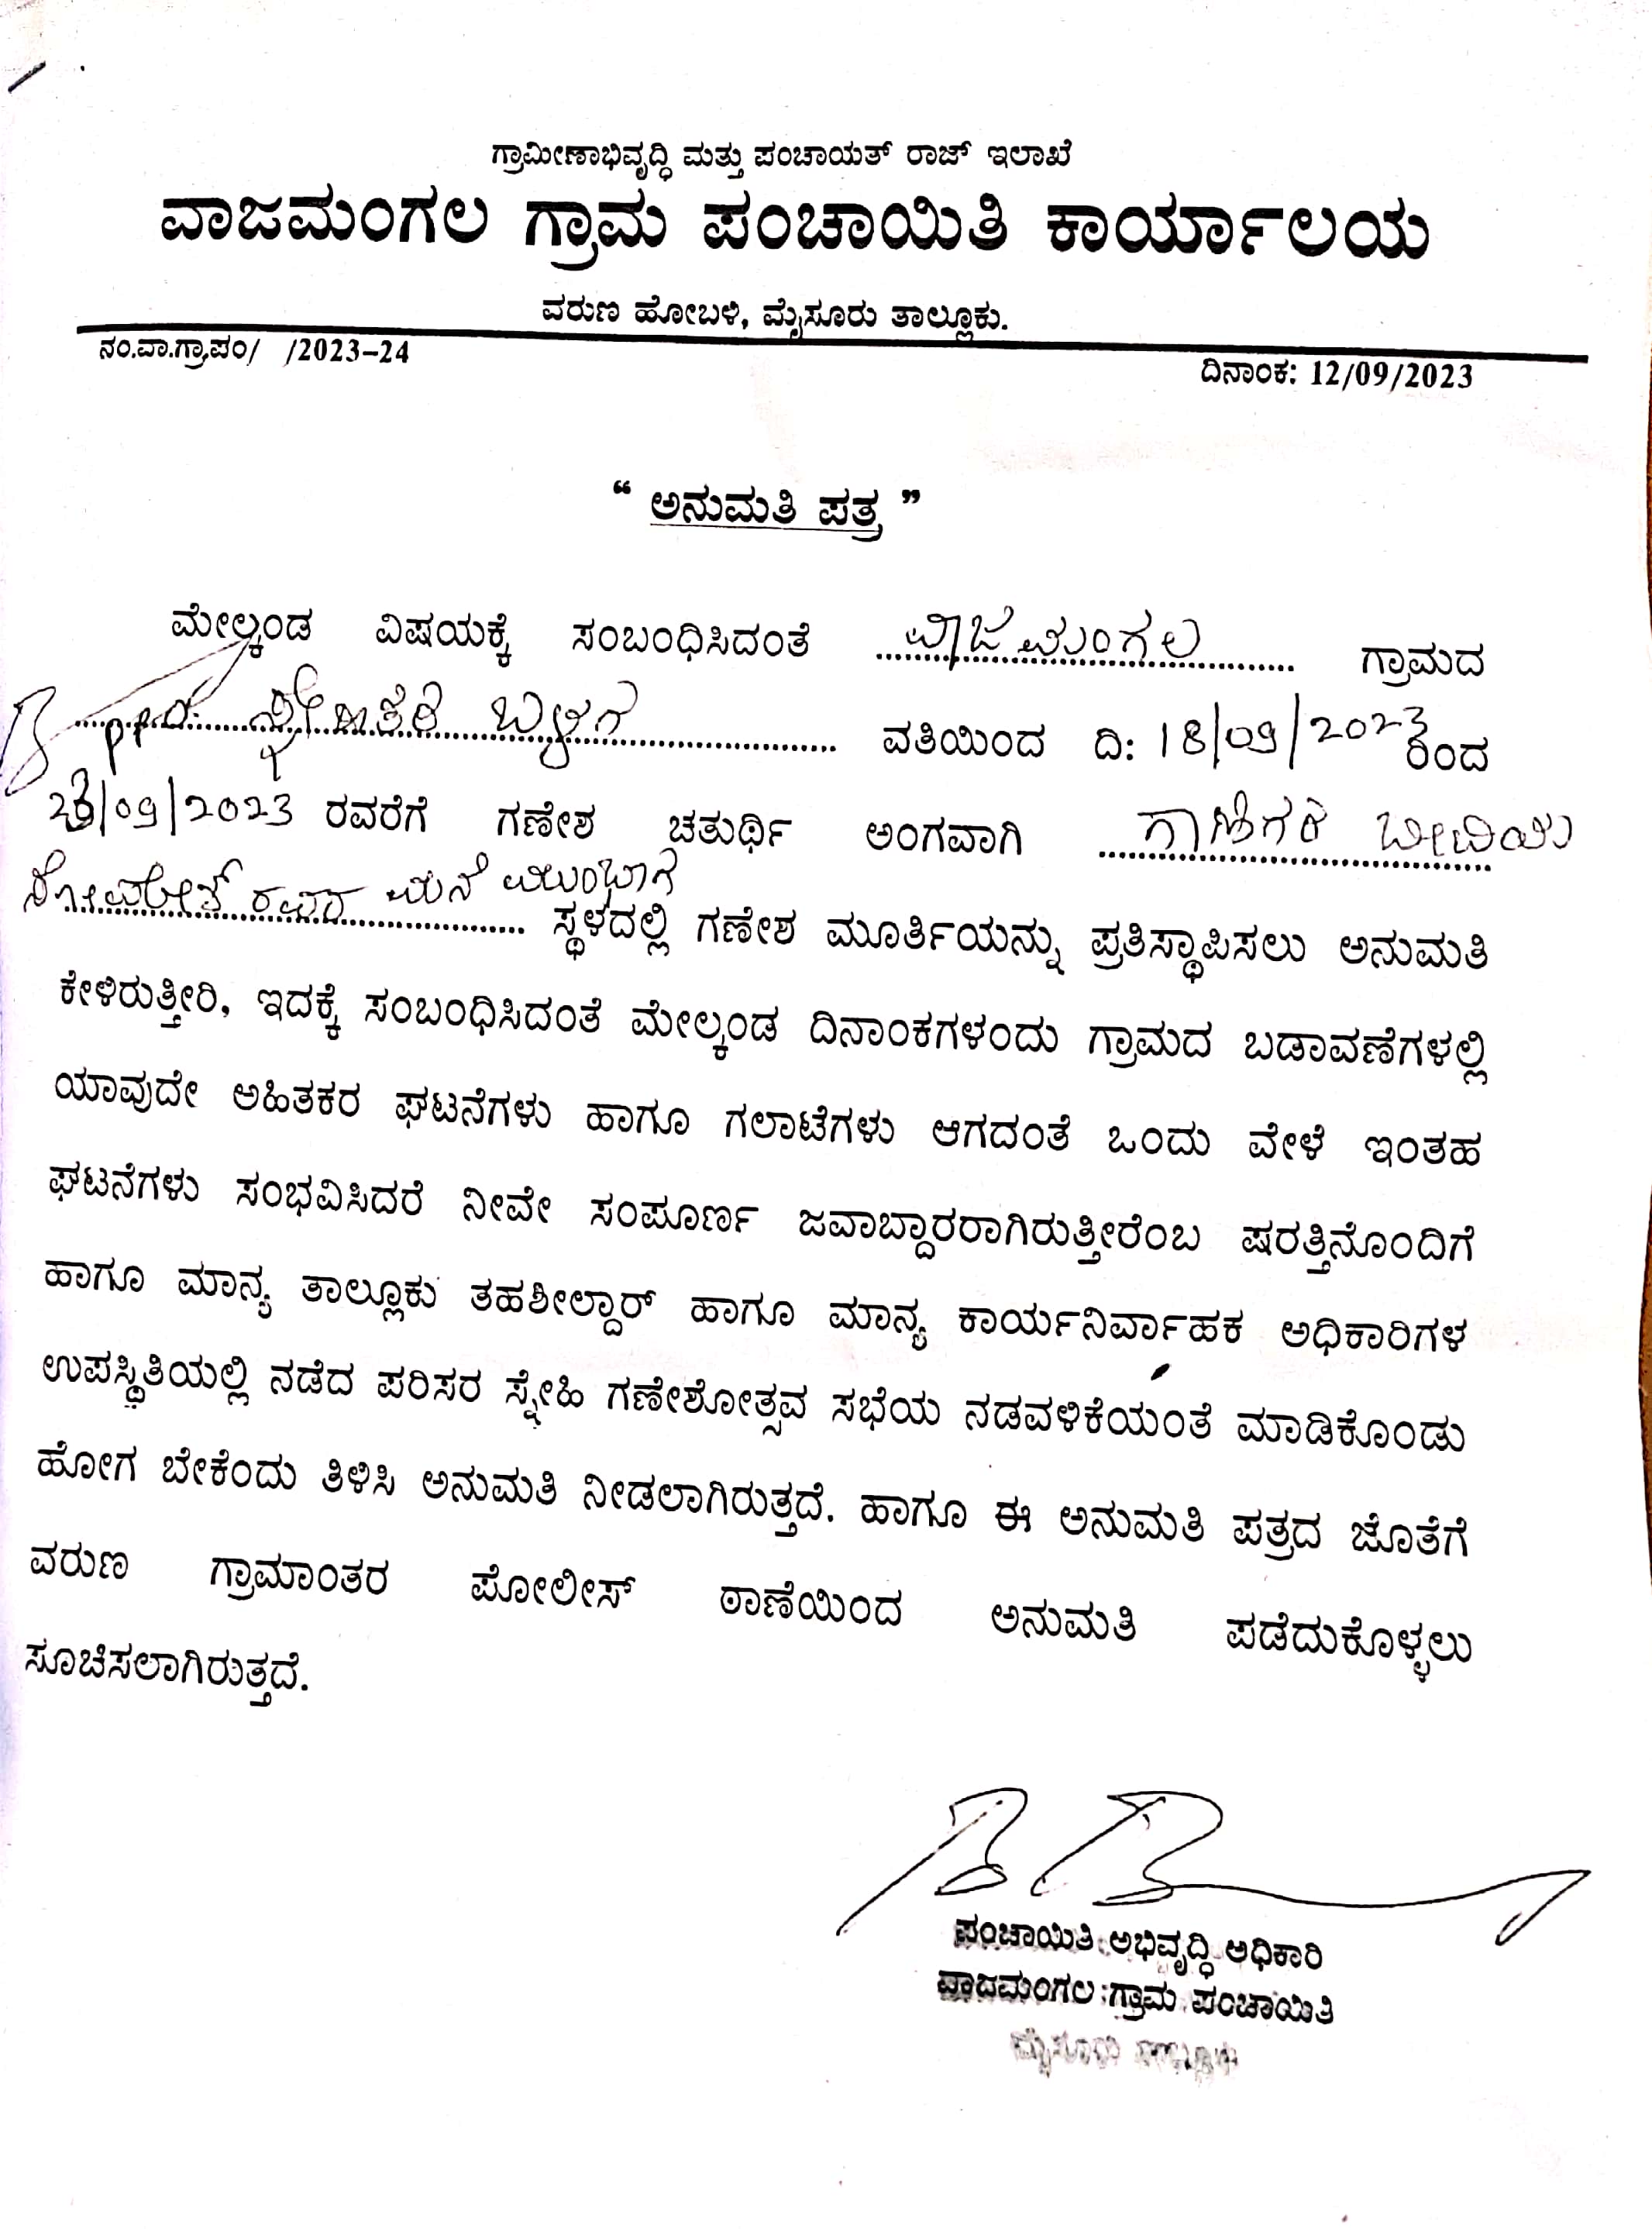 ಗ್ರಾಮೀಣಾಭಿವೃದ್ಧಿ ಮತ್ತು ಪಂಚಾಯತ್ ರಾಜ್ ಇಲಾಖೆ
ವಾಜಮಂಗಲ ಗ್ರಾಮ ಪಂಚಾಯಿತಿ ಕಾರ್ಯಾಲಯ
ವರುಣ ಹೋಬಳಿ, ಮೈಸೂರು ತಾಲ್ಲೂಕು.
ನಂ.ವಾ.ಗ್ರಾ.ಪಂ/ /2023-24
ದಿನಾಂಕ: 12/09/2023
“ ಅನುಮತಿ ಪತ್ರ ”
ಮೇಲ್ಕಂಡ ವಿಷಯಕ್ಕೆ ಸಂಬಂಧಿಸಿದಂತೆ ವಾಜಮಂಗಲ ಗ್ರಾಮದ
ಸ್ನೇಹಿತರ ಬಳಗ ವತಿಯಿಂದ ದಿ: 18/09/2023 ರಿಂದ
23/09/2023 ರವರೆಗೆ ಗಣೇಶ ಚತುರ್ಥಿ ಅಂಗವಾಗಿ ಗಾಣಿಗರ ಬೀದಿಯ
ರವರ ಮನೆ ಮುಂಭಾಗ ಸ್ಥಳದಲ್ಲಿ ಗಣೇಶ ಮೂರ್ತಿಯನ್ನು ಪ್ರತಿಸ್ಥಾಪಿಸಲು ಅನುಮತಿ
ಕೇಳಿರುತ್ತೀರಿ, ಇದಕ್ಕೆ ಸಂಬಂಧಿಸಿದಂತೆ ಮೇಲ್ಕಂಡ ದಿನಾಂಕಗಳಂದು ಗ್ರಾಮದ ಬಡಾವಣೆಗಳಲ್ಲಿ
ಯಾವುದೇ ಅಹಿತಕರ ಘಟನೆಗಳು ಹಾಗೂ ಗಲಾಟೆಗಳು ಆಗದಂತೆ ಒಂದು ವೇಳೆ ಇಂತಹ
ಘಟನೆಗಳು ಸಂಭವಿಸಿದರೆ ನೀವೇ ಸಂಪೂರ್ಣ ಜವಾಬ್ದಾರರಾಗಿರುತ್ತೀರೆಂಬ ಷರತ್ತಿನೊಂದಿಗೆ
ಹಾಗೂ ಮಾನ್ಯ ತಾಲ್ಲೂಕು ತಹಶೀಲ್ದಾರ್ ಹಾಗೂ ಮಾನ್ಯ ಕಾರ್ಯನಿರ್ವಾಹಕ ಅಧಿಕಾರಿಗಳ
ಉಪಸ್ಥಿತಿಯಲ್ಲಿ ನಡೆದ ಪರಿಸರ ಸ್ನೇಹಿ ಗಣೇಶೋತ್ಸವ ಸಭೆಯ ನಡವಳಿಕೆಯಂತೆ ಮಾಡಿಕೊಂಡು
ಹೋಗ ಬೇಕೆಂದು ತಿಳಿಸಿ ಅನುಮತಿ ನೀಡಲಾಗಿರುತ್ತದೆ. ಹಾಗೂ ಈ ಅನುಮತಿ ಪತ್ರದ ಜೊತೆಗೆ
ವರುಣ ಗ್ರಾಮಾಂತರ ಪೋಲೀಸ್ ಠಾಣೆಯಿಂದ ಅನುಮತಿ ಪಡೆದುಕೊಳ್ಳಲು
ಸೂಚಿಸಲಾಗಿರುತ್ತದೆ.
ಪಂಚಾಯಿತಿ ಅಭಿವೃದ್ಧಿ ಅಧಿಕಾರಿ
ವಾಜಮಂಗಲ ಗ್ರಾಮ ಪಂಚಾಯಿತಿ